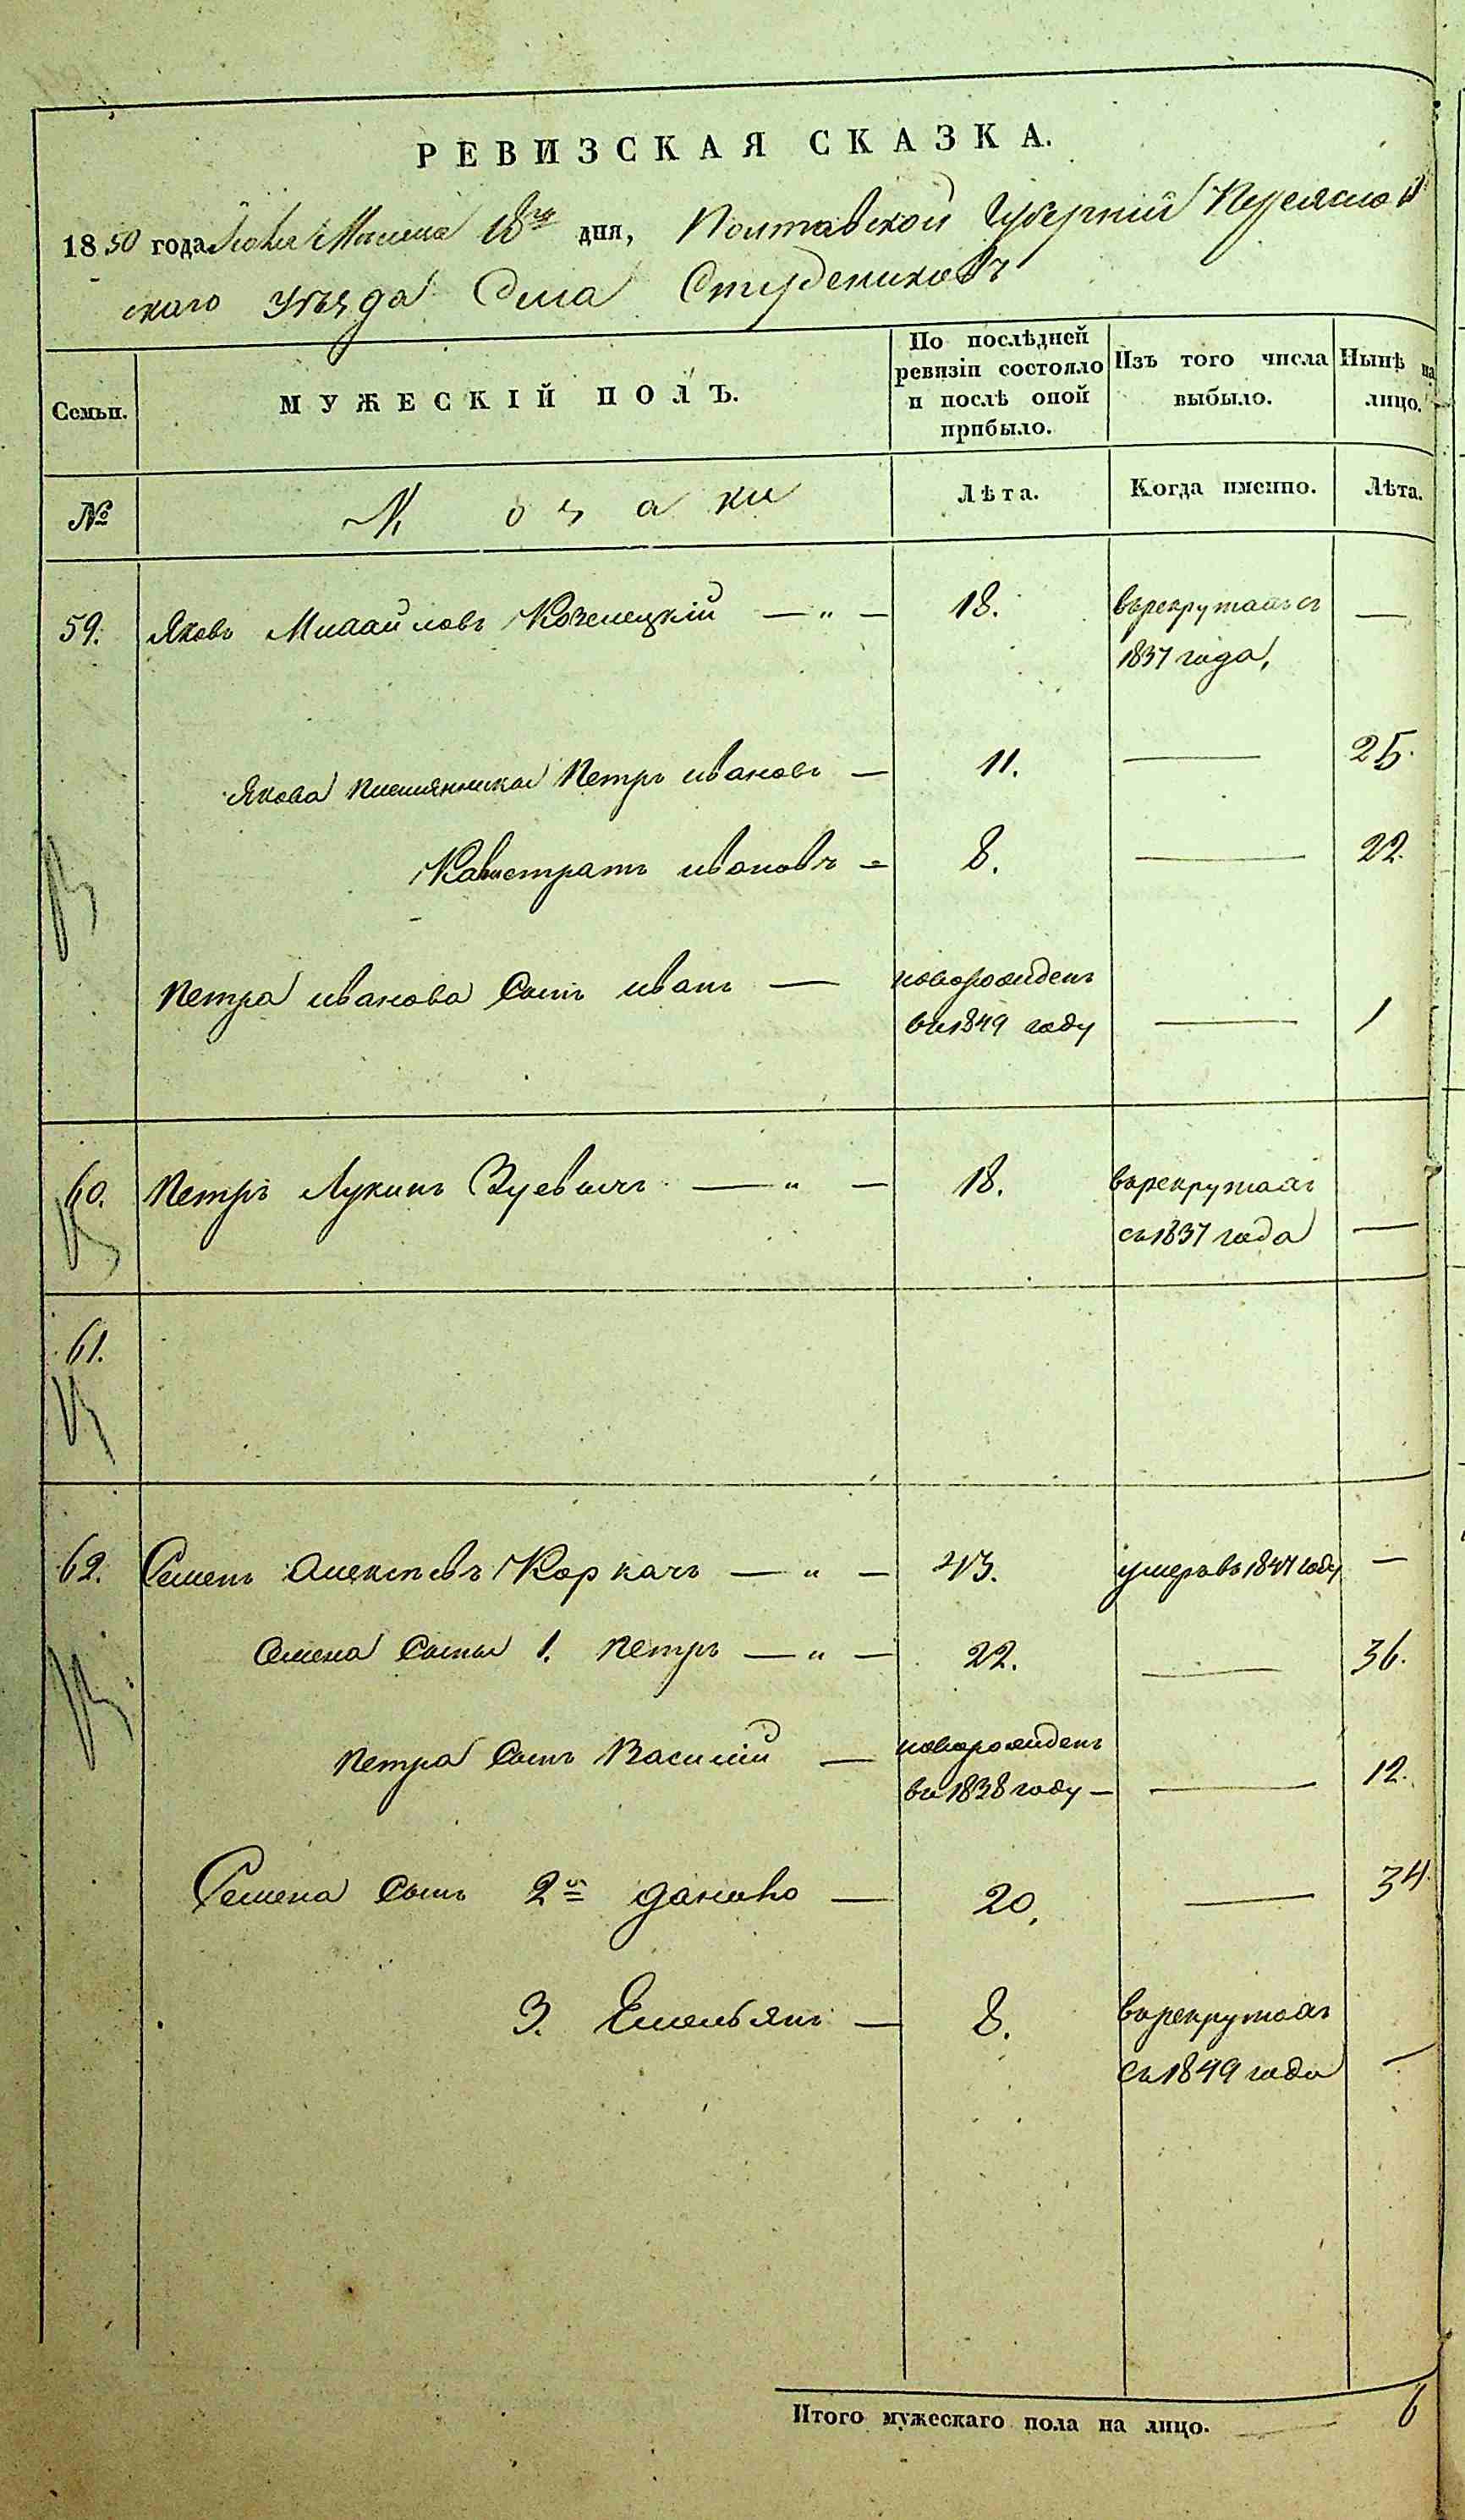 РЕВИЗСКАЯ СКАЗКА.
1850 года Июня Месяца 18го дня, Полтавской Губернии Переяслов
скаго уѣзда Села Студениковъ
Семьи. МУЖЕСКІЙ ПОЛЪ. По послѣдней ревизіи состояло и послѣ оной прибыло. Изъ того числа выбыло. Нынѣ на лицо.
№ Козаки Лѣта. Когда именно. Лѣта.
59. Яковъ Михайловъ Козенецкій — „ — 18. върекрутахъ съ —
1837 года,
Якова племянники Петръ ивановъ — 11. — 25.
Кавистратъ ивановъ = 8. — 22.
Петра иванова Сынъ иванъ — новорожденъ
въ 1849 году — 1
60. Петръ Лукинъ Зуевичъ — „ — 18. върекрутахъ
съ 1837 года —
61.
62. Семенъ Алексѣевъ Коркачъ — „ — 43. умеръ въ 1847 году —
Семена Сыны 1. Петръ — „ — 22. — 36.
Петра Сынъ Василій — новорожденъ
въ 1838 году — — 12.
Семена Сынъ 2й данило — 20. — 34.
3. Емельянъ — 8. върекрутахъ
съ 1849 года —
Итого мужескаго пола на лицо. — 6